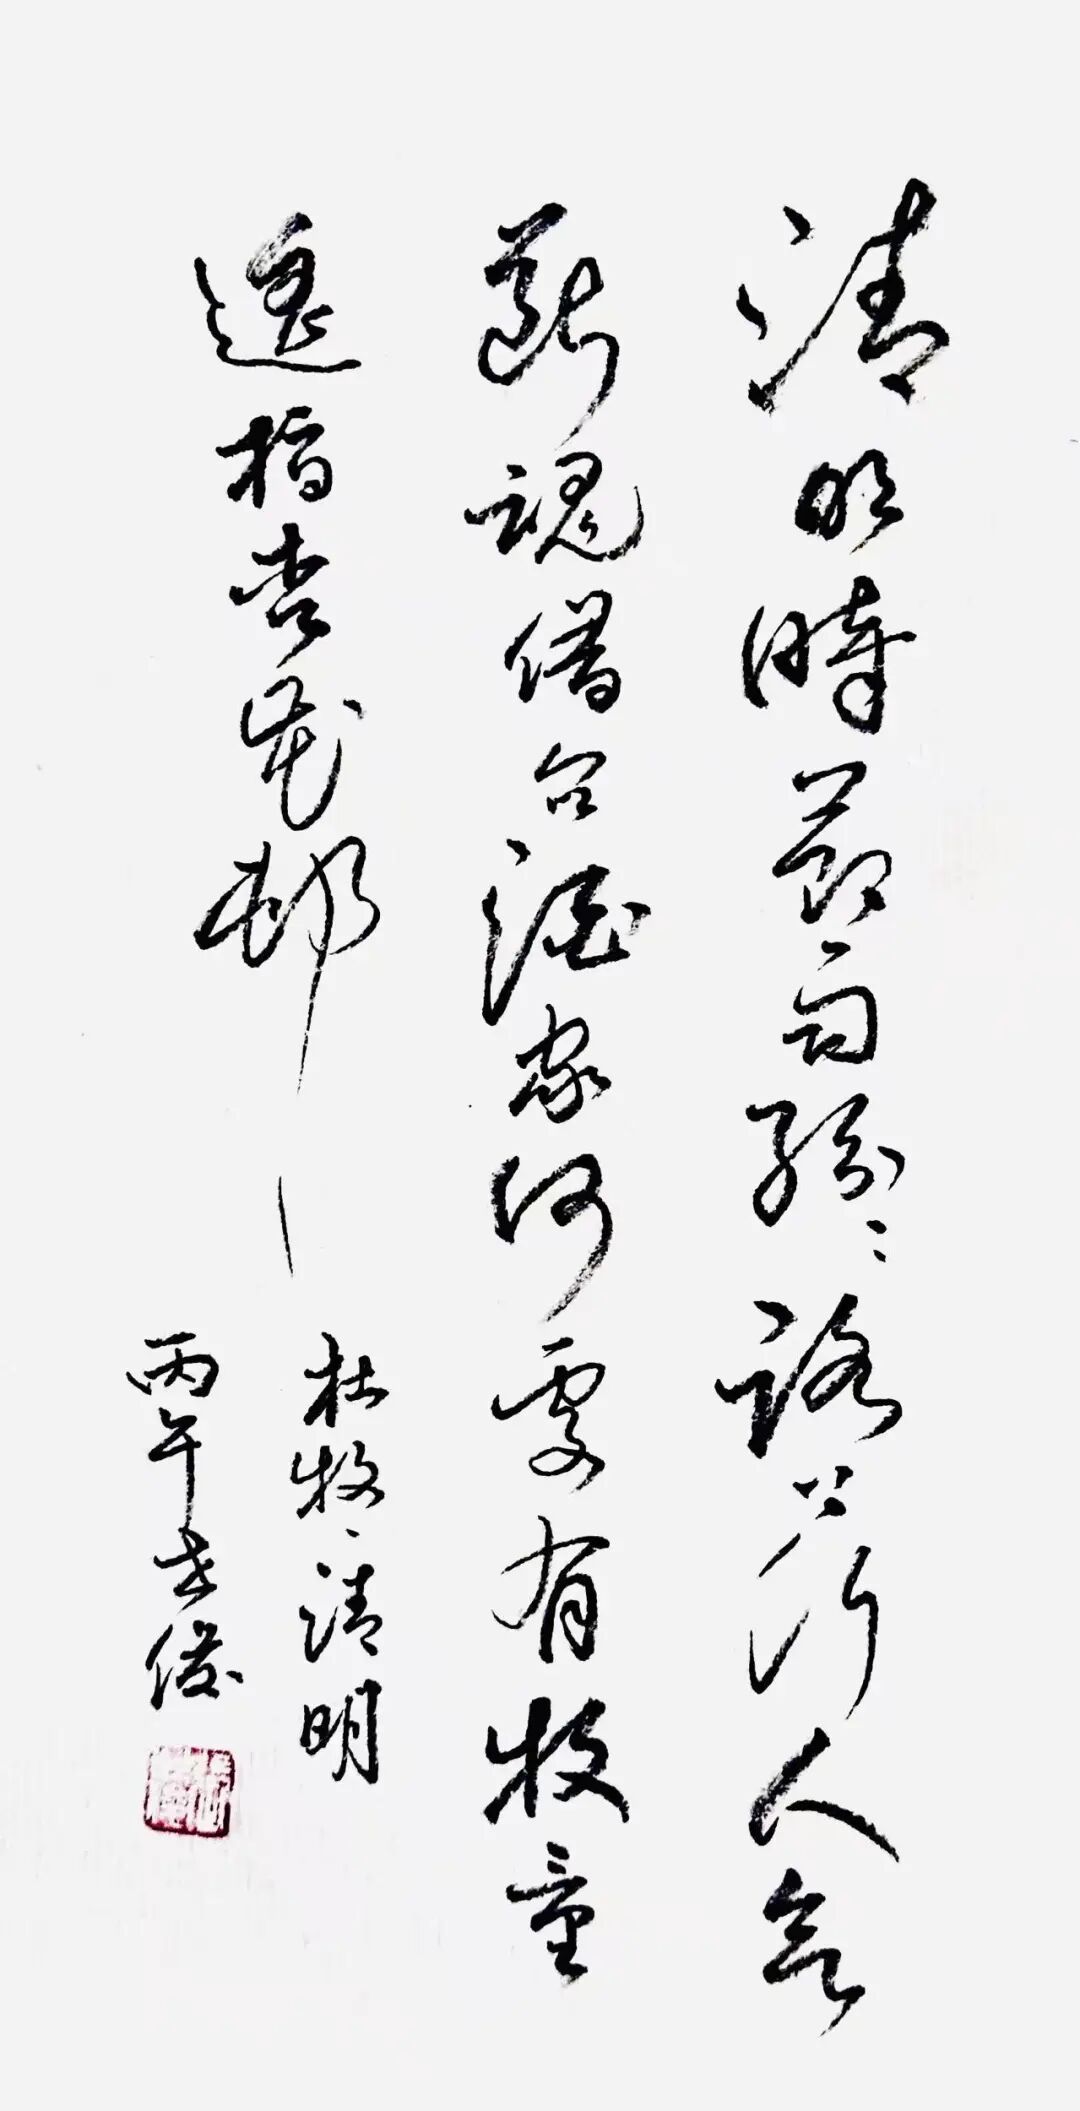 清明時節雨紛〻路上行人欲
斷魂借问酒家何處有牧童
遙指杏花邨
杜牧、清明
丙午